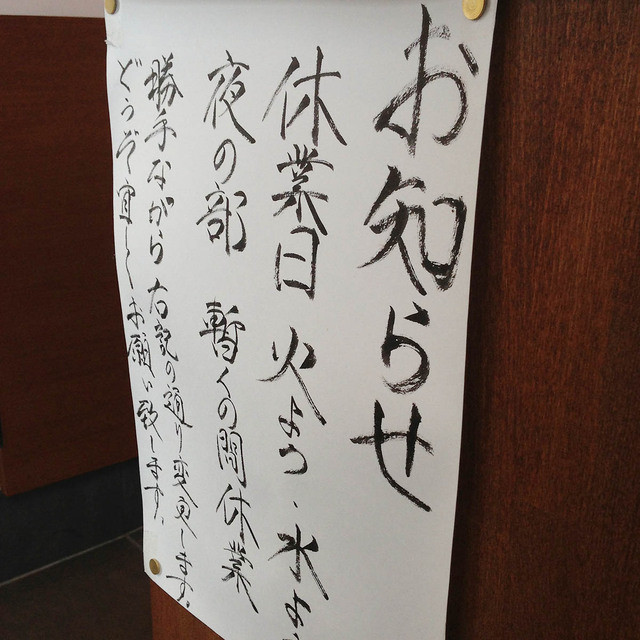 お知らせ
休業日 火よう・水よ
夜の部 暫くの間休業
勝手ながら右記の通り変更します。
どうぞ宜しくお願い致します。